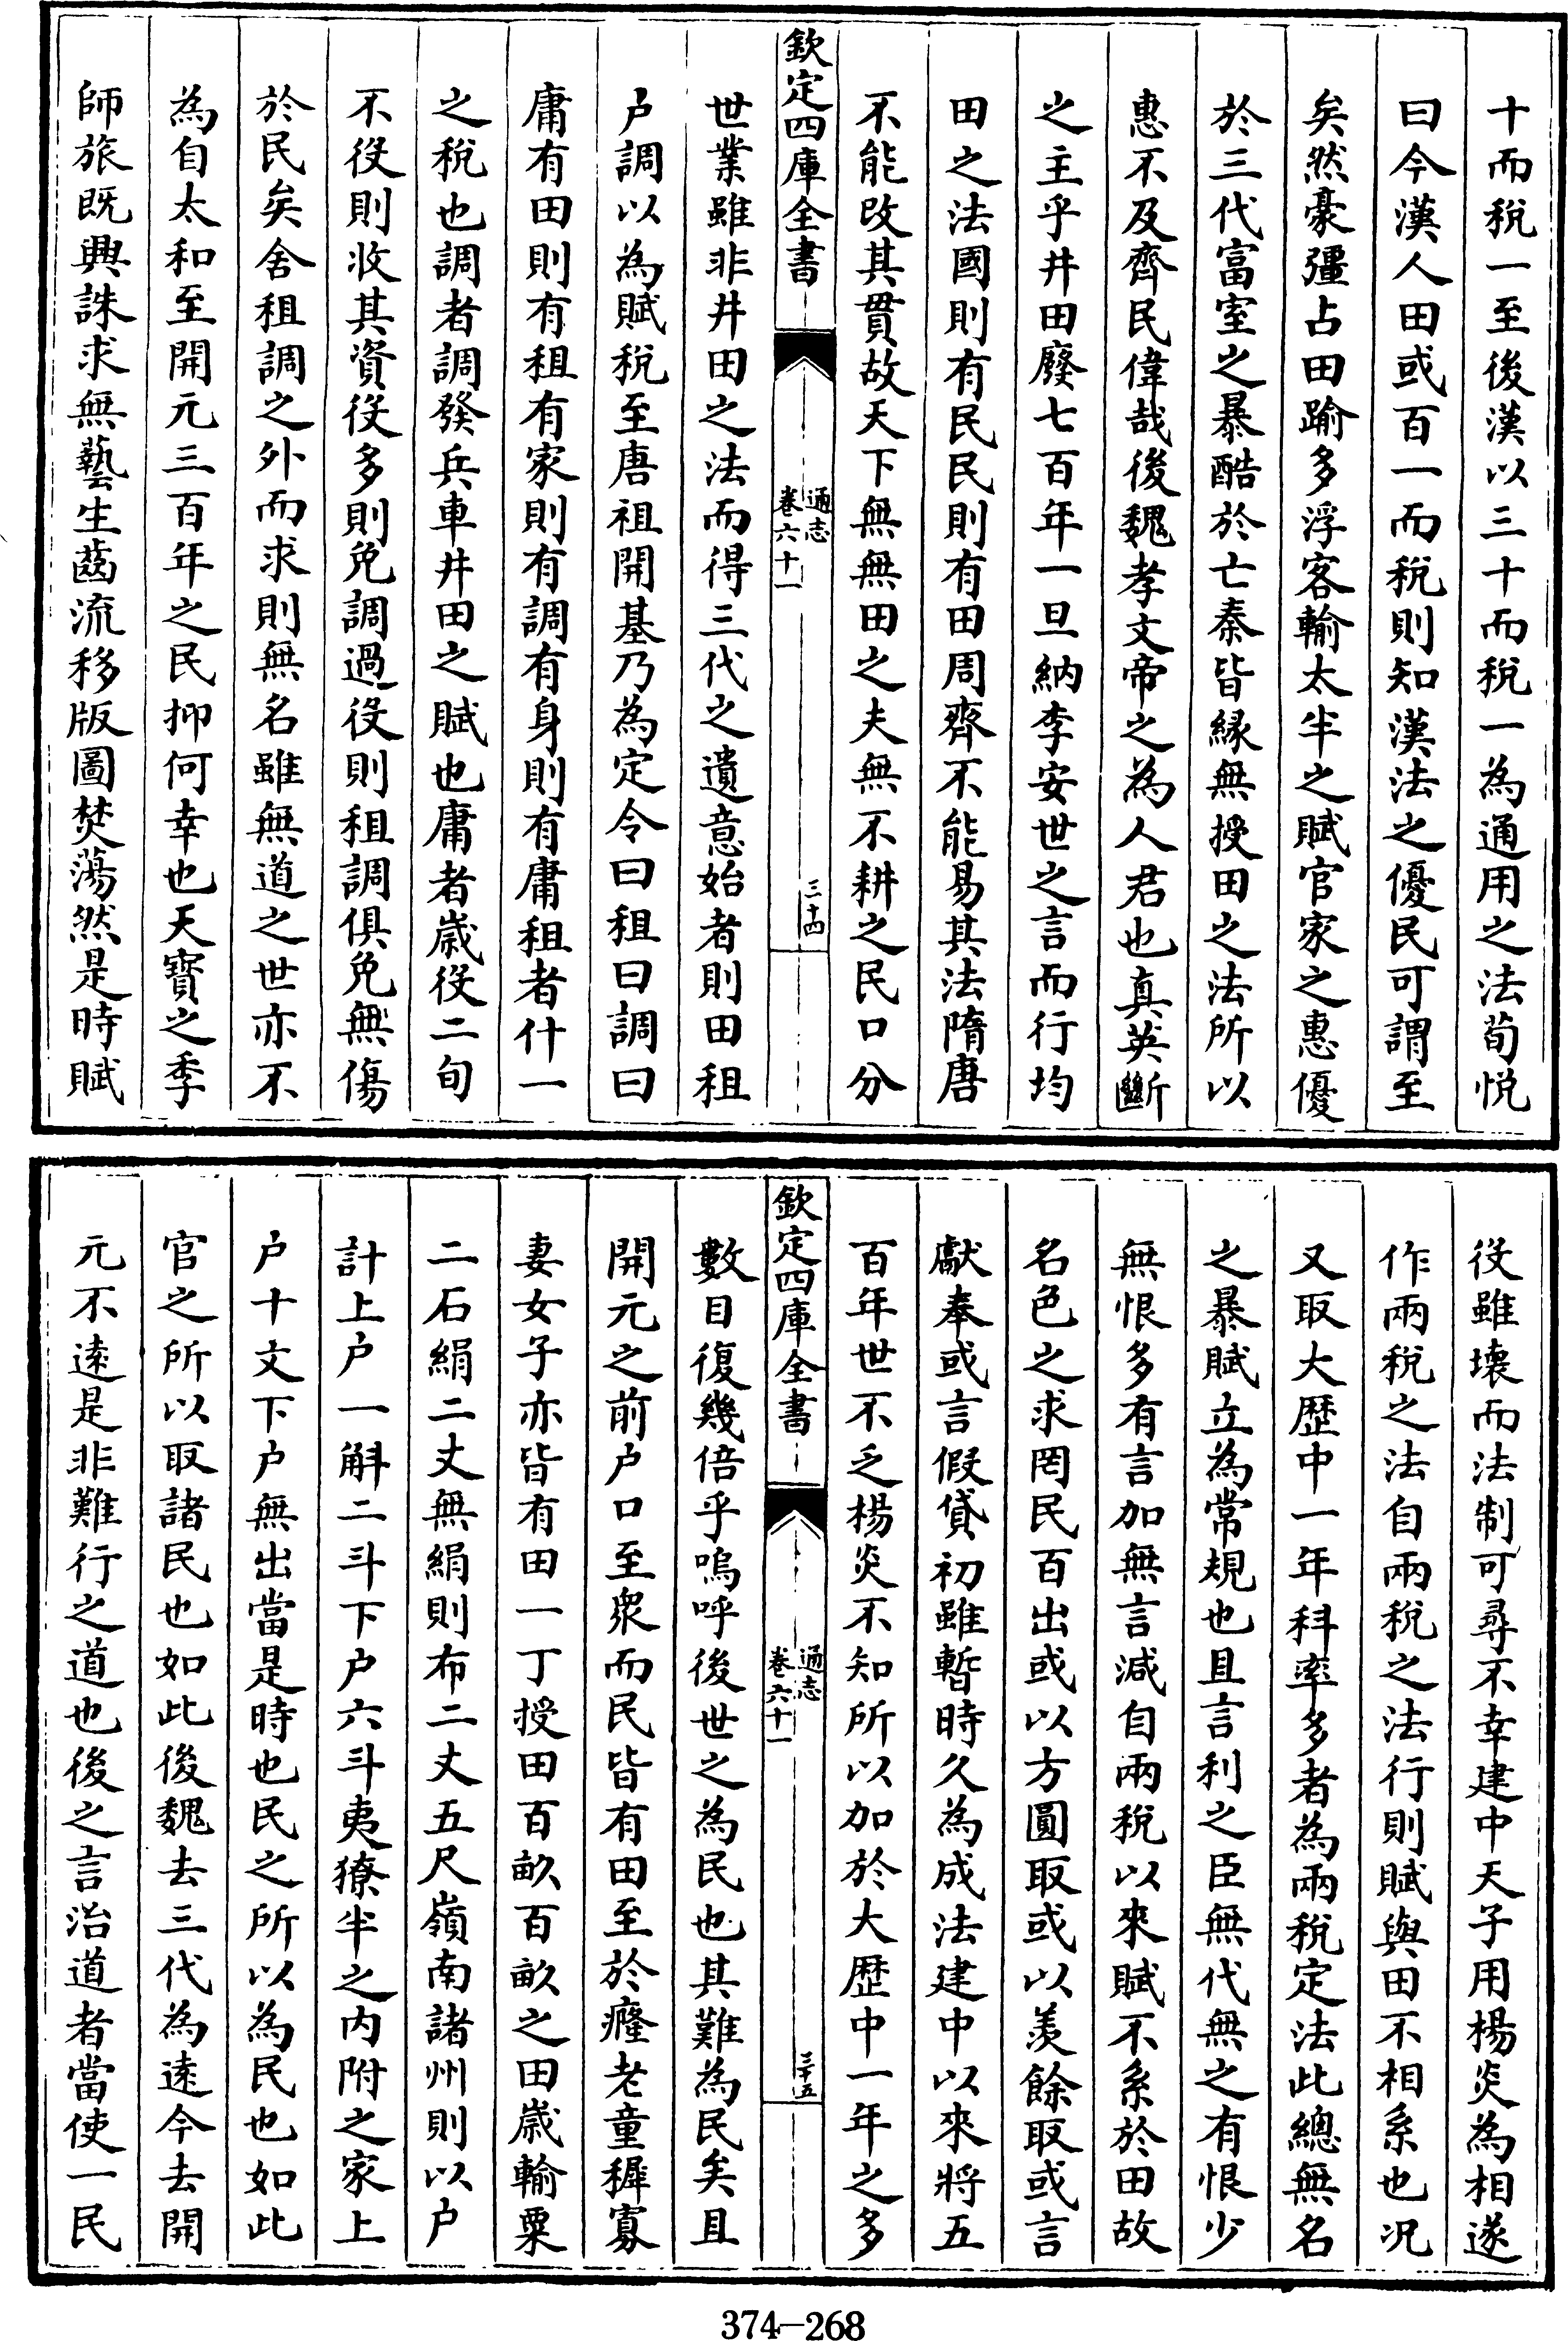 十而稅一至後漢以三十而稅一為通用之法荀悅
曰今漢人田或百一而稅則知漢法之優民可謂至
矣然豪彊占田踰多浮客輸太半之賦官家之惠優
於三代富室之暴酷於亡秦皆縁無授田之法所以
惠不及齊民偉哉後魏孝文帝之為人君也真英斷
之主乎井田廢七百年一旦納李安世之言而行均
田之法國則有民民則有田周齊不能易其法隋唐
不能改其貫故天下無無田之夫無不耕之民口分
欽定四庫全書
通志
卷六十一
三十四
世業雖非井田之法而得三代之遺意始者則田租
户調以為賦稅至唐祖開基乃為定令曰租曰調曰
庸有田則有租有家則有調有身則有庸租者什一
之稅也調者調發兵車井田之賦也庸者歲役二旬
不役則收其資役多則免調過役則租調俱免無傷
於民矣舍租調之外而求則無名雖無道之世亦不
為自太和至開元三百年之民抑何幸也天寶之季
師旅既興誅求無藝生齒流移版圖焚蕩然是時賦
役雖壊而法制可尋不幸建中天子用楊炎為相遂
作兩稅之法自兩稅之法行則賦與田不相系也况
又取大歴中一年科率多者為兩稅定法此總無名
之暴賦立為常規也且言利之臣無代無之有恨少
無恨多有言加無言減自兩稅以來賦不系於田故
名色之求罔民百出或以方圓取或以羨餘取或言
獻奉或言假貸初雖暫時久為成法建中以來將五
百年世不乏楊炎不知所以加於大歴中一年之多
欽定四庫全書
通志
卷六十一
三十五
數目復幾倍乎嗚呼後世之為民也其難為民矣且
開元之前户口至衆而民皆有田至於癃老童穉寡
妻女子亦皆有田一丁授田百畝百畝之田歲輸粟
二石絹二丈無絹則布二丈五尺嶺南諸州則以户
計上户一斛二斗下户六斗夷獠半之内附之家上
户十文下户無出當是時也民之所以為民也如此
官之所以取諸民也如此後魏去三代為逺今去開
元不逺是非難行之道也後之言治道者當使一民
374-268